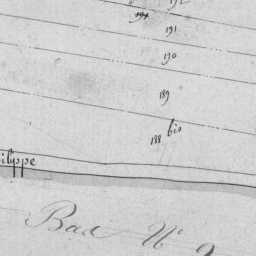 192
194
191
190
189
188 bis
ilippe
Bac N° 2